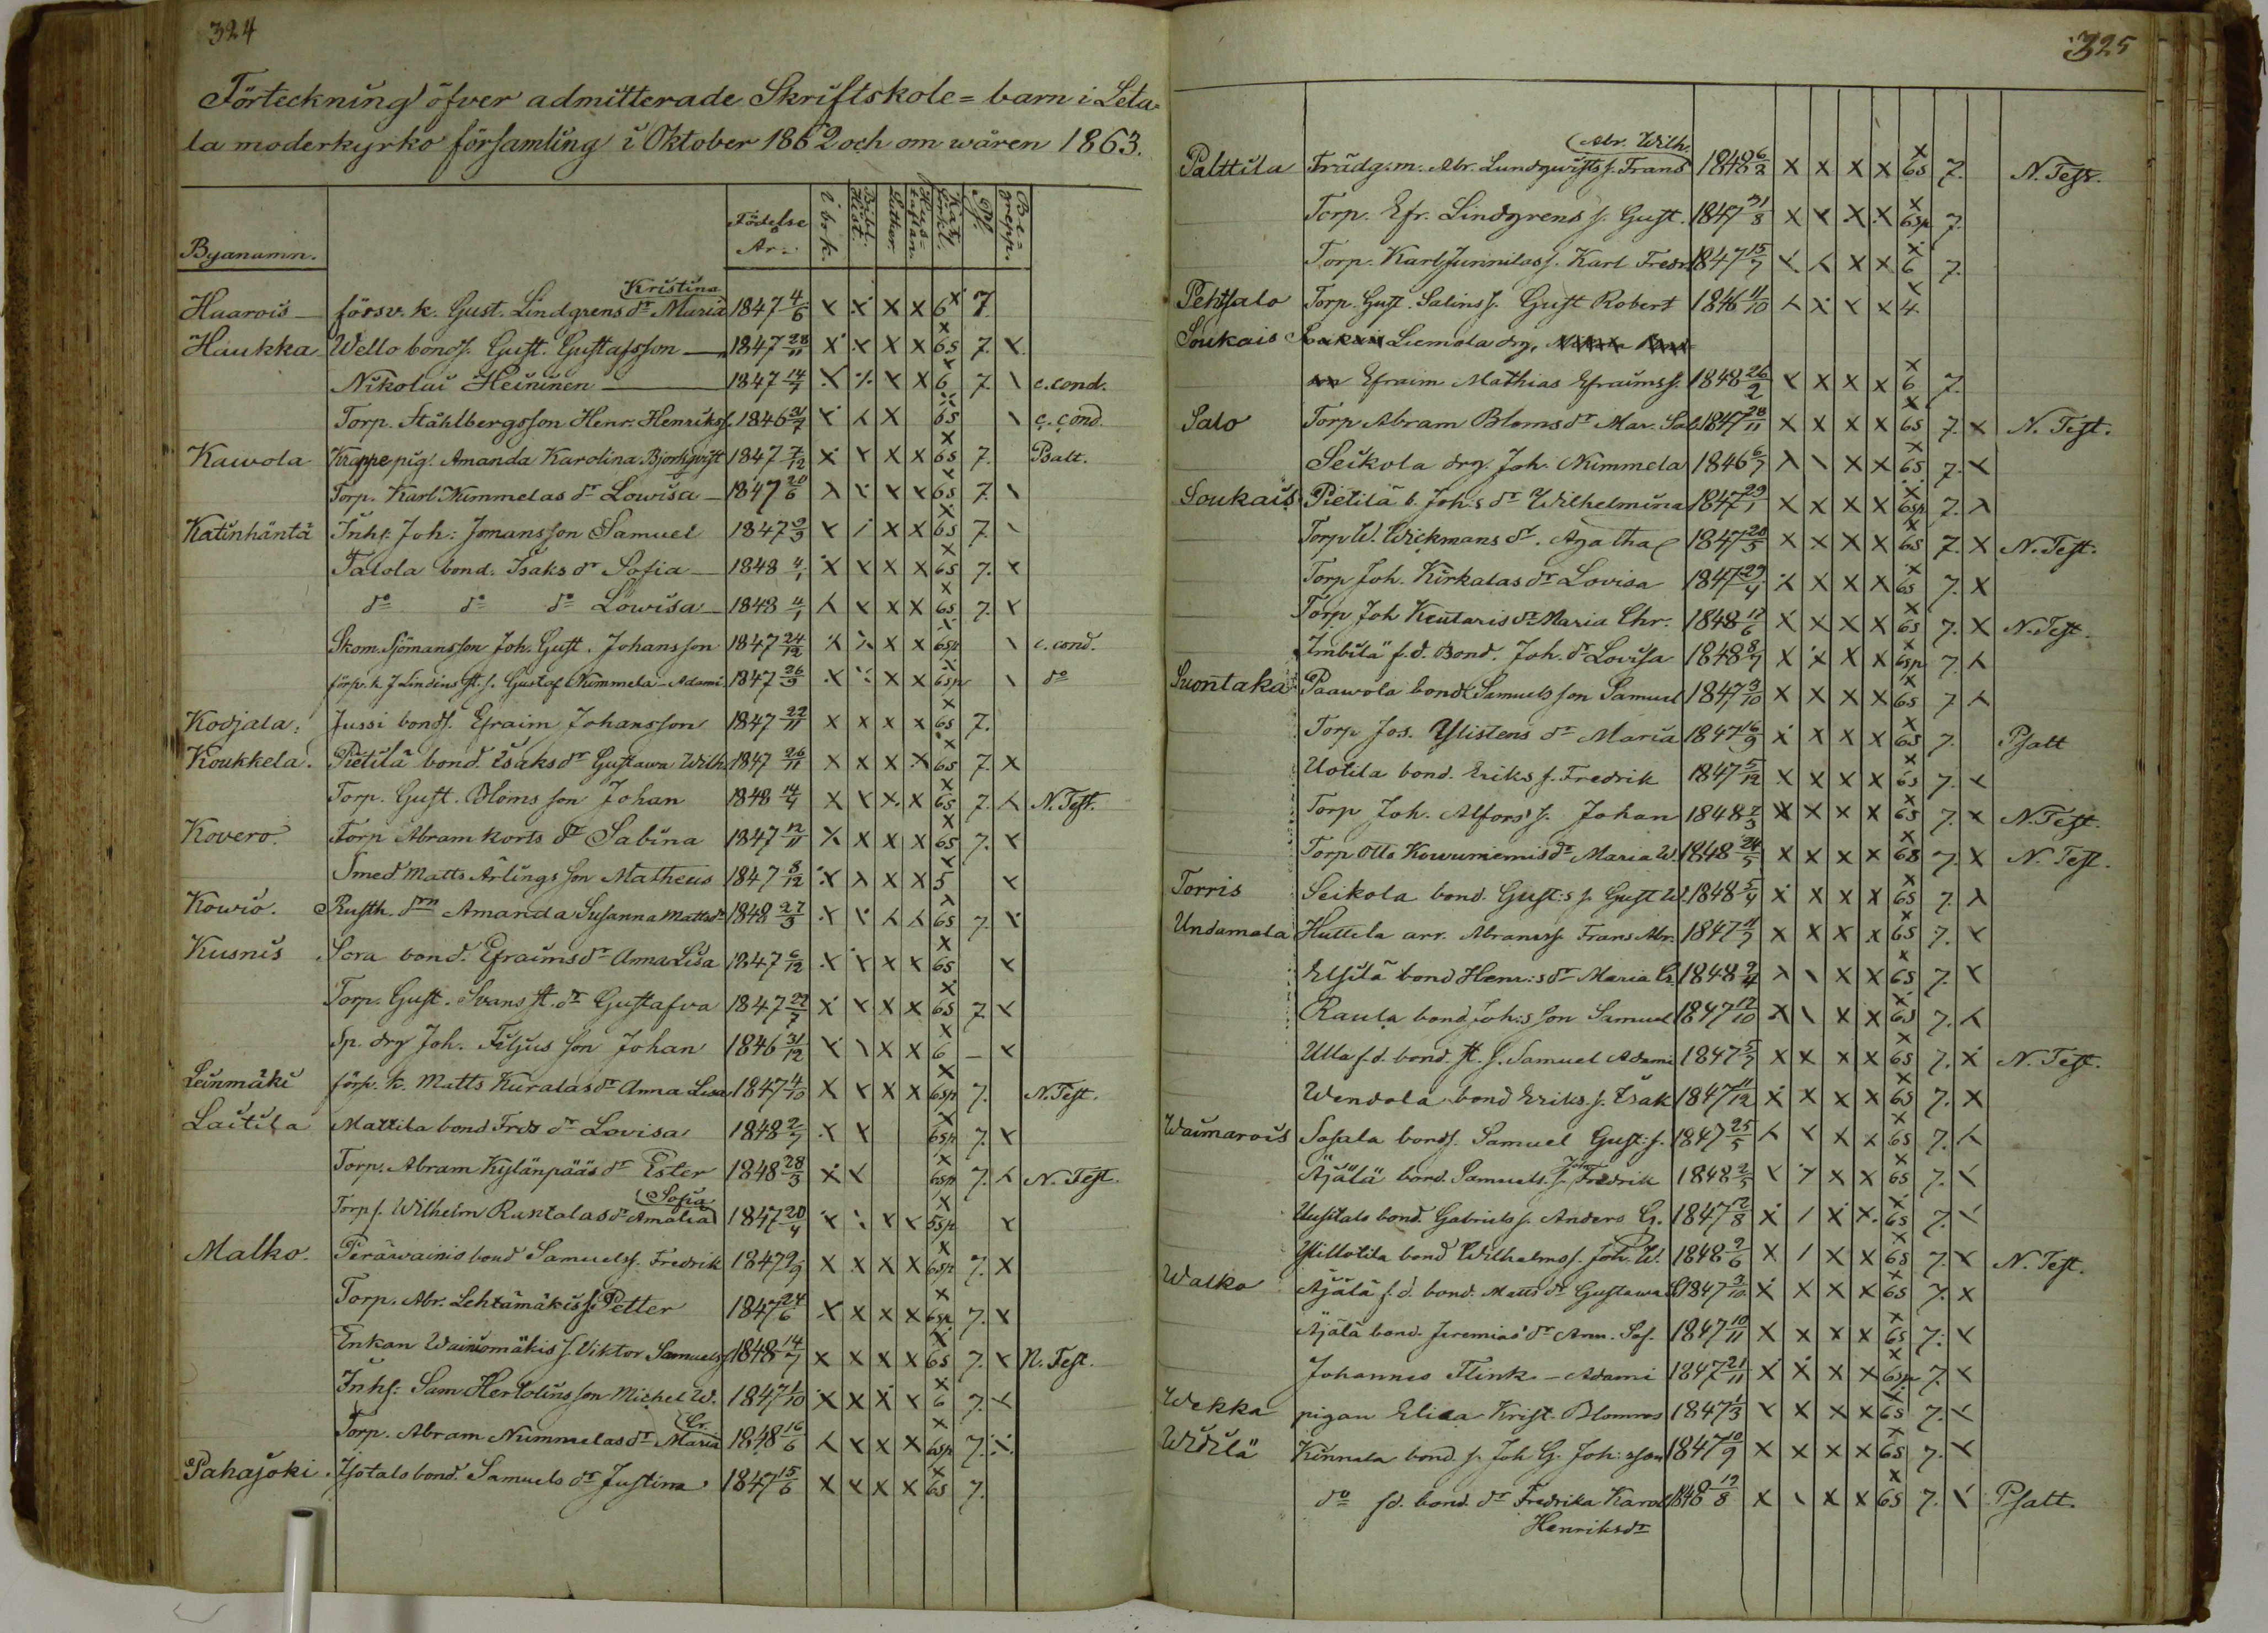 324
Förteckning öfver admitterade Skriftskole=barn i Leta
la moderkyrko församling i Oktober 1862 och om wåren 1863.
Byanamn. Födelse År. I bok. Bibl. Hist. Luther. Hus-taflan. Ps. Be=grepp.
Kristina
Haarois försv. k. Gust. Lindgrens dr Maria 1847 4/6 x x x x 6 x 7.
Haukka Wello bonds. Gust. Gustafsson 1847 28/11 x x x x 6s x 7. x
Nikolai Heininen 1847 14/7 x x x x 6 x 7. \ c. cond.
Torp. Ståhlbergs son Henr. Henrikss. 1846 21/7 x x x 6s x \ c. cond.
Kawola Krappe pig. Amanda Karolina Bjorkqvist 1847 7/12 x x x x 6s x 7. Psalt.
Torp. Karl Nummelas dr Lowisa 1847 20/6 x x x x 6s x 7. \
Katinhäntä Inhs. Joh: Jomansson Samuel 1847 9/9 x / x x 6s x 7. \
Talola bond. Isaks dr Sofia 1848 4/1 x x x x 6s x 7. x
do do do Lowisa 1848 4/1 x x x x 6s x 7. x
Skom. Sjömans son Joh. Gust. Johansson 1847 24/12 x x x x 6sp x \ c. cond.
försv. k. J Lindins st. s. Gustaf Nummela-Adami 1847 26/9 x x x x 6sp x \ do
Kodjala. Jussi bonds. Efraim Johansson 1847 22/11 x x x x 6s x 7.
Koukkela. Pietilä bond. Isaks dr Gustawa Wilh. 1847 26/11 x x x x 6s x 7. x
Torp. Gust. Bloms son Johan 1848 14/4 x x x x 6s x 7. x N. Test.
Kovero. Torp Abram Korts dr Sabina 1847 12/11 x x x x 6s x 7. x
Smed Matts Ärlings son Matheus 1847 8/12 x x x x 5 x x
Kowio. Rusth. drn Amanda Susanna Mattsdr 1848 27/3 x x x x 6s x 7. x
Kusnis Sora bond. Efraims dr Anna Lisa 1847 6/12 x x x x 6s x x
Torp. Gust. Svans st. dr Gustafva 1847 22/7 x x x x 6s x 7. x
Sp. drg Joh. Filjus son Johan 1846 31/12 x \ x x 6 x – x
Leinmäki försv. k. Matts Kuralas dr Anna Lisa 1847 4/10 x x x x 6sp x 7. N. Test.
Laitila Mattila bond Frds dr Lovisa 1848 2/7 x x 6sp x 7. x
Torp. Abram Kylänpääs dr Ester 1848 28/3 x x 6sp x 7. x N. Test.
Sofia
Torp s. Wilhelm Rantalas dr Amalia 1847 20/4 x x x x 5sp x x
Malko. Peräwainio bond Samuelss. Fredrik 1847 9/9 x x x x 6sp x 7. x
Torp. Abr. Lehtämäkis s. Petter 1847 24/6 x x x x 6sp x 7. x
Enkan Wainiomäkis s. Viktor Samuelss 1848 14/7 x x x x 6s x 7. x N. Test.
Inhs: Sam Hertolins son Michel W. 1847 1/10 x x x x 6 x 7. x
Cr.
Torp. Abram Nummelas dr Maria 1848 16/6 x x x x 6sp x 7. x
Pahajoki. Isotalo bond. Samuels dr Justina 1847 15/6 x x x x 6s x 7.
325
Abr. Wilh.
Palttila Trädg. m. Abr. Lundqwists s. Frans 1848 6/2 x x x x 6s x 7. N. Test.
Torp. Efr. Lindgrens s. Gust. 1847 31/8 x x x x 6sp x 7.
Torp. Karl Junnilas s. Karl Fredr 1847 15/7 x x x x 6 x 7.
Pehtsalo Torp. Gust. Salins s. Gust Robert 1846 11/10 x x x x 4 x
Soukais Liemola drg,
Efraim Mathias Efraimss. 1848 26/2 x x x x 6 x 7.
Salo Torp Abram Bloms dr Mar. Sab 1847 28/11 x x x x 6s x 7. x N. Test.
Seikola drg. Joh. Nummela 1846 6/7 x \ x x 6s x 7. x
Soukais Pietilä b. Joh:s dr Wilhelmina 1847 29/1 x x x x 6sp x 7. x
Torp W. Wickmans dr. Agatha 1847 20/5 x x x x 6s x 7. x N. Test.
Torp Joh. Kirkalas dr Lovisa 1847 29/4 x x x x 6s x 7. x
Torp Joh Keutaris dr Maria Chr. 1848 17/6 x x x x 6s x 7. x N. Test.
Imbilä f.d. Bond. Joh. dr Lovisa 1848 8/7 x x x x 6sp x 7. x
Suontaka Paawola bond Samuels son Samuel 1847 3/10 x x x x 6s x 7 x
Torp Jos. Ylistens dr Maria 1847 16/9 x x x x 6s x 7. Psalt
Uotila bond. Eriks s. Fredrik 1847 5/12 x x x x 6s x 7. x
Torp Joh. Alfors' s. Johan 1848 7/3 x x x x 6s x 7. x N. Test.
Torp Otto Kowuniemis dr Maria W. 1848 24/5 x x x x 6s x 7. x N. Test.
Torris Seikola bond. Gust:s s. Gust W. 1848 5/4 x x x x 6s x 7. x
Undamala Huttila arr. Abramss. Frans Abr. 1847 11/7 x x x x 6s x 7. x
Elsilä bond Henr:s dr Maria Cr. 1848 9/4 x \ x x 6s x 7. x
Raula bond Joh:s son Samuel 1847 12/10 x \ x x 6s x 7. x
Ulla f.d. bond. st. s. Samuel Adami 1847 5/7 x x x x 6s x 7. x N. Test.
Wendola bond Eriks s. Isak 1847 11/12 x x x x 6s x 7. x
Waimarois Sasala bonds. Samuel Gust:s. 1847 25/5 x x x x 6s x 7. x
Joh
Äjälä bond. Samuels s. Fredrik 1848 2/5 x x x x 6s x 7. x
Uusitalo bond. Gabriels s. Anders G. 1847 12/8 x / x x 6s x 7. x
Ylillotila bond Wilhelms s. Joh. W. 1848 9/6 x / x x 6s x 7. x N. Test.
Walko Äjälä f.d. bond. Matts dr Gustawa 1847 3/10 x x x x 6s x 7. x
Äjälä bond. Jeremias' dr Ann. Sof. 1847 10/11 x x x x 6s x 7. x
Johannes Flink - Adami 1847 21/11 x x x x 6sp x 7. x
Wekka pigan Elisa Krist. Blomros 1847 1/3 x x x x 6s x 7. x
Widilä Kinnala bond s. Joh G. Joh:sson 1847 10/9 x x x x 6s x 7. x
do fd. bond. dr Fredrika Karol 1848 19/8 x \ x x 6s x 7. x Psalt.
Henriksdr